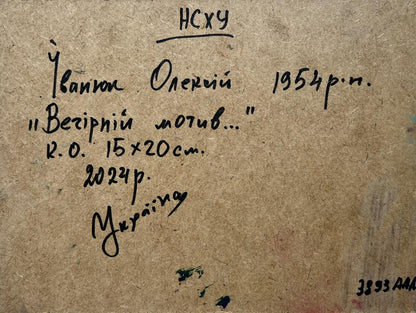 НСХУ
Іванюк Олексій 1954р.н.
„Вечірній мотив..."
к.о. 15×20см.
2024р.
Україна